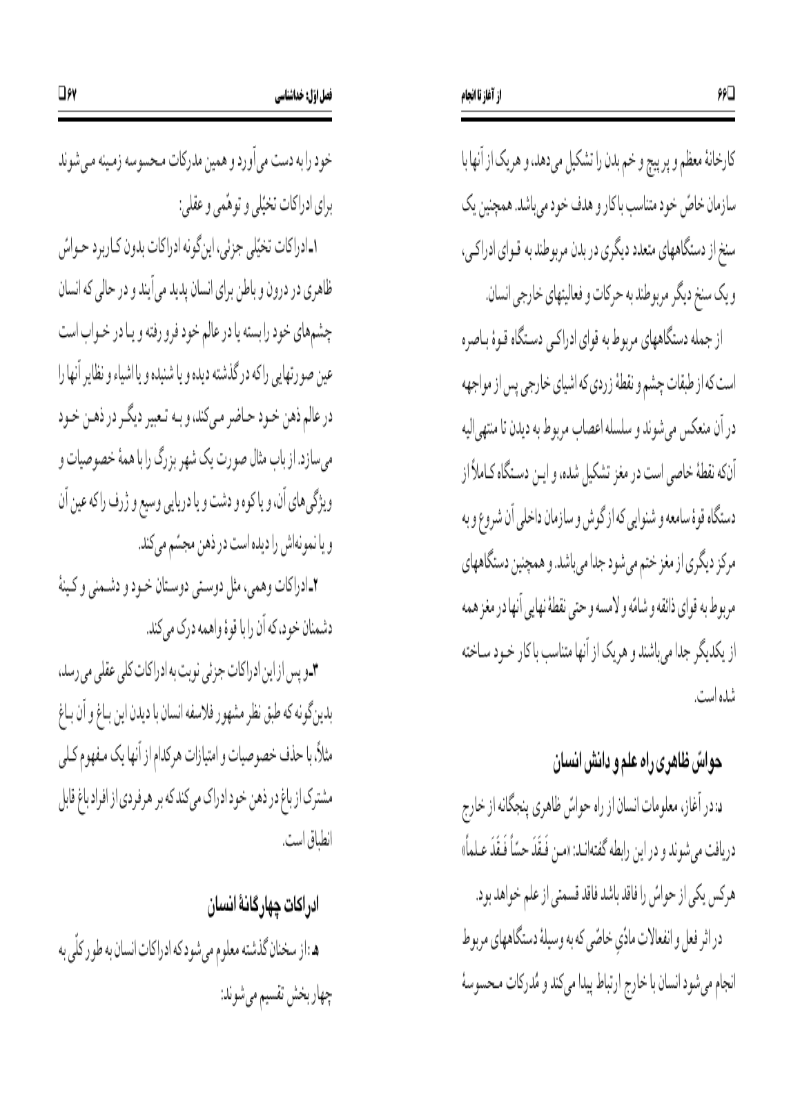 ❑۶۶
از آغاز تا انجام
کارخانهٔ معظم و پر پیچ و خم بدن را تشکیل می‌دهد، و هریک از آنها با
سازمان خاصّ خود متناسب با کار و هدف خود می‌باشد. همچنین یک
سنخ از دستگاههای متعدد دیگری در بدن مربوطند به قـوای ادراکـی،
و یک سنخ دیگر مربوطند به حرکات و فعالیتهای خارجی انسان.
از جمله دستگاههای مربوط به قوای ادراکـی دسـتگاه قـوهٔ بـاصره
است که از طبقات چشم و نقطهٔ زردی که اشیای خارجی پس از مواجهه
در آن منعکس می‌شوند و سلسله اعصاب مربوط به دیدن تا منتهی‌الیه
آن‌که نقطهٔ خاصی است در مغز تشکیل شده، و ایـن دسـتگاه کـاملاً از
دستگاه قوهٔ سامعه و شنوایی که از گوش و سازمان داخلی آن شروع و به
مرکز دیگری از مغز ختم می‌شود جدا می‌باشد. و همچنین دستگاههای
مربوط به قوای ذائقه و شامّه و لامسه و حتی نقطهٔ نهایی آنها در مغز همه
از یکدیگر جدا می‌باشند و هریک از آنها متناسب با کار خـود سـاخته
شده است.
حواسّ ظاهری راه علم و دانش انسان
د: در آغاز، معلومات انسان از راه حواسّ ظاهری پنجگانه از خارج
دریافت می‌شوند و در این رابطه گفته‌انـد: «مـن فَـقَدَ حسّاً فَـقَدَ عـلماً»
هرکس یکی از حواسّ را فاقد باشد فاقد قسمتی از علم خواهد بود.
در اثر فعل و انفعالات مادّیِ خاصّی که به وسیلهٔ دستگاههای مربوط
انجام می‌شود انسان با خارج ارتباط پیدا می‌کند و مُدرکات مـحسوسهٔ
فصل اوّل: خداشناسی
۶۷❑
خود را به دست می‌آورد و همین مدرکات مـحسوسه زمـینه مـی‌شوند
برای ادراکات تخیّلی و توهّمی و عقلی:
۱ـ ادراکات تخیّلی جزئی، این‌گونه ادراکات بدون کـاربرد حـواسّ
ظاهری در درون و باطن برای انسان پدید می‌آیند و در حالی که انسان
چشم‌های خود را بسته یا در عالم خود فرو رفته و یـا در خـواب است
عین صورتهایی را که در گذشته دیده و یا شنیده و یا اشیاء و نظایر آنها را
در عالم ذهن خـود حـاضر مـی‌کند، و بـه تـعبیر دیگـر در ذهـن خـود
می‌سازد. از باب مثال صورت یک شهر بزرگ را با همهٔ خصوصیات و
ویژگی‌های آن، و یا کوه و دشت و یا دریایی وسیع و ژرف را که عین آن
و یا نمونه‌اش را دیده است در ذهن مجسّم می‌کند.
۲ـ ادراکات وهمی، مثل دوسـتی دوسـتان خـود و دشـمنی و کـینهٔ
دشمنان خود، که آن را با قوهٔ واهمه درک می‌کند.
۳ـ و پس از این ادراکات جزئی نوبت به ادراکات کلی عقلی می‌رسد،
بدین‌گونه که طبق نظر مشهور فلاسفه انسان با دیدن این بـاغ و آن بـاغ
مثلاً، با حذف خصوصیات و امتیازات هرکدام از آنها یک مـفهوم کـلی
مشترک از باغ در ذهن خود ادراک می‌کند که بر هرفردی از افراد باغ قابل
انطباق است.
ادراکات چهارگانهٔ انسان
هـ : از سخنان گذشته معلوم می‌شود که ادراکات انسان به طور کلّی به
چهار بخش تقسیم می‌شوند: